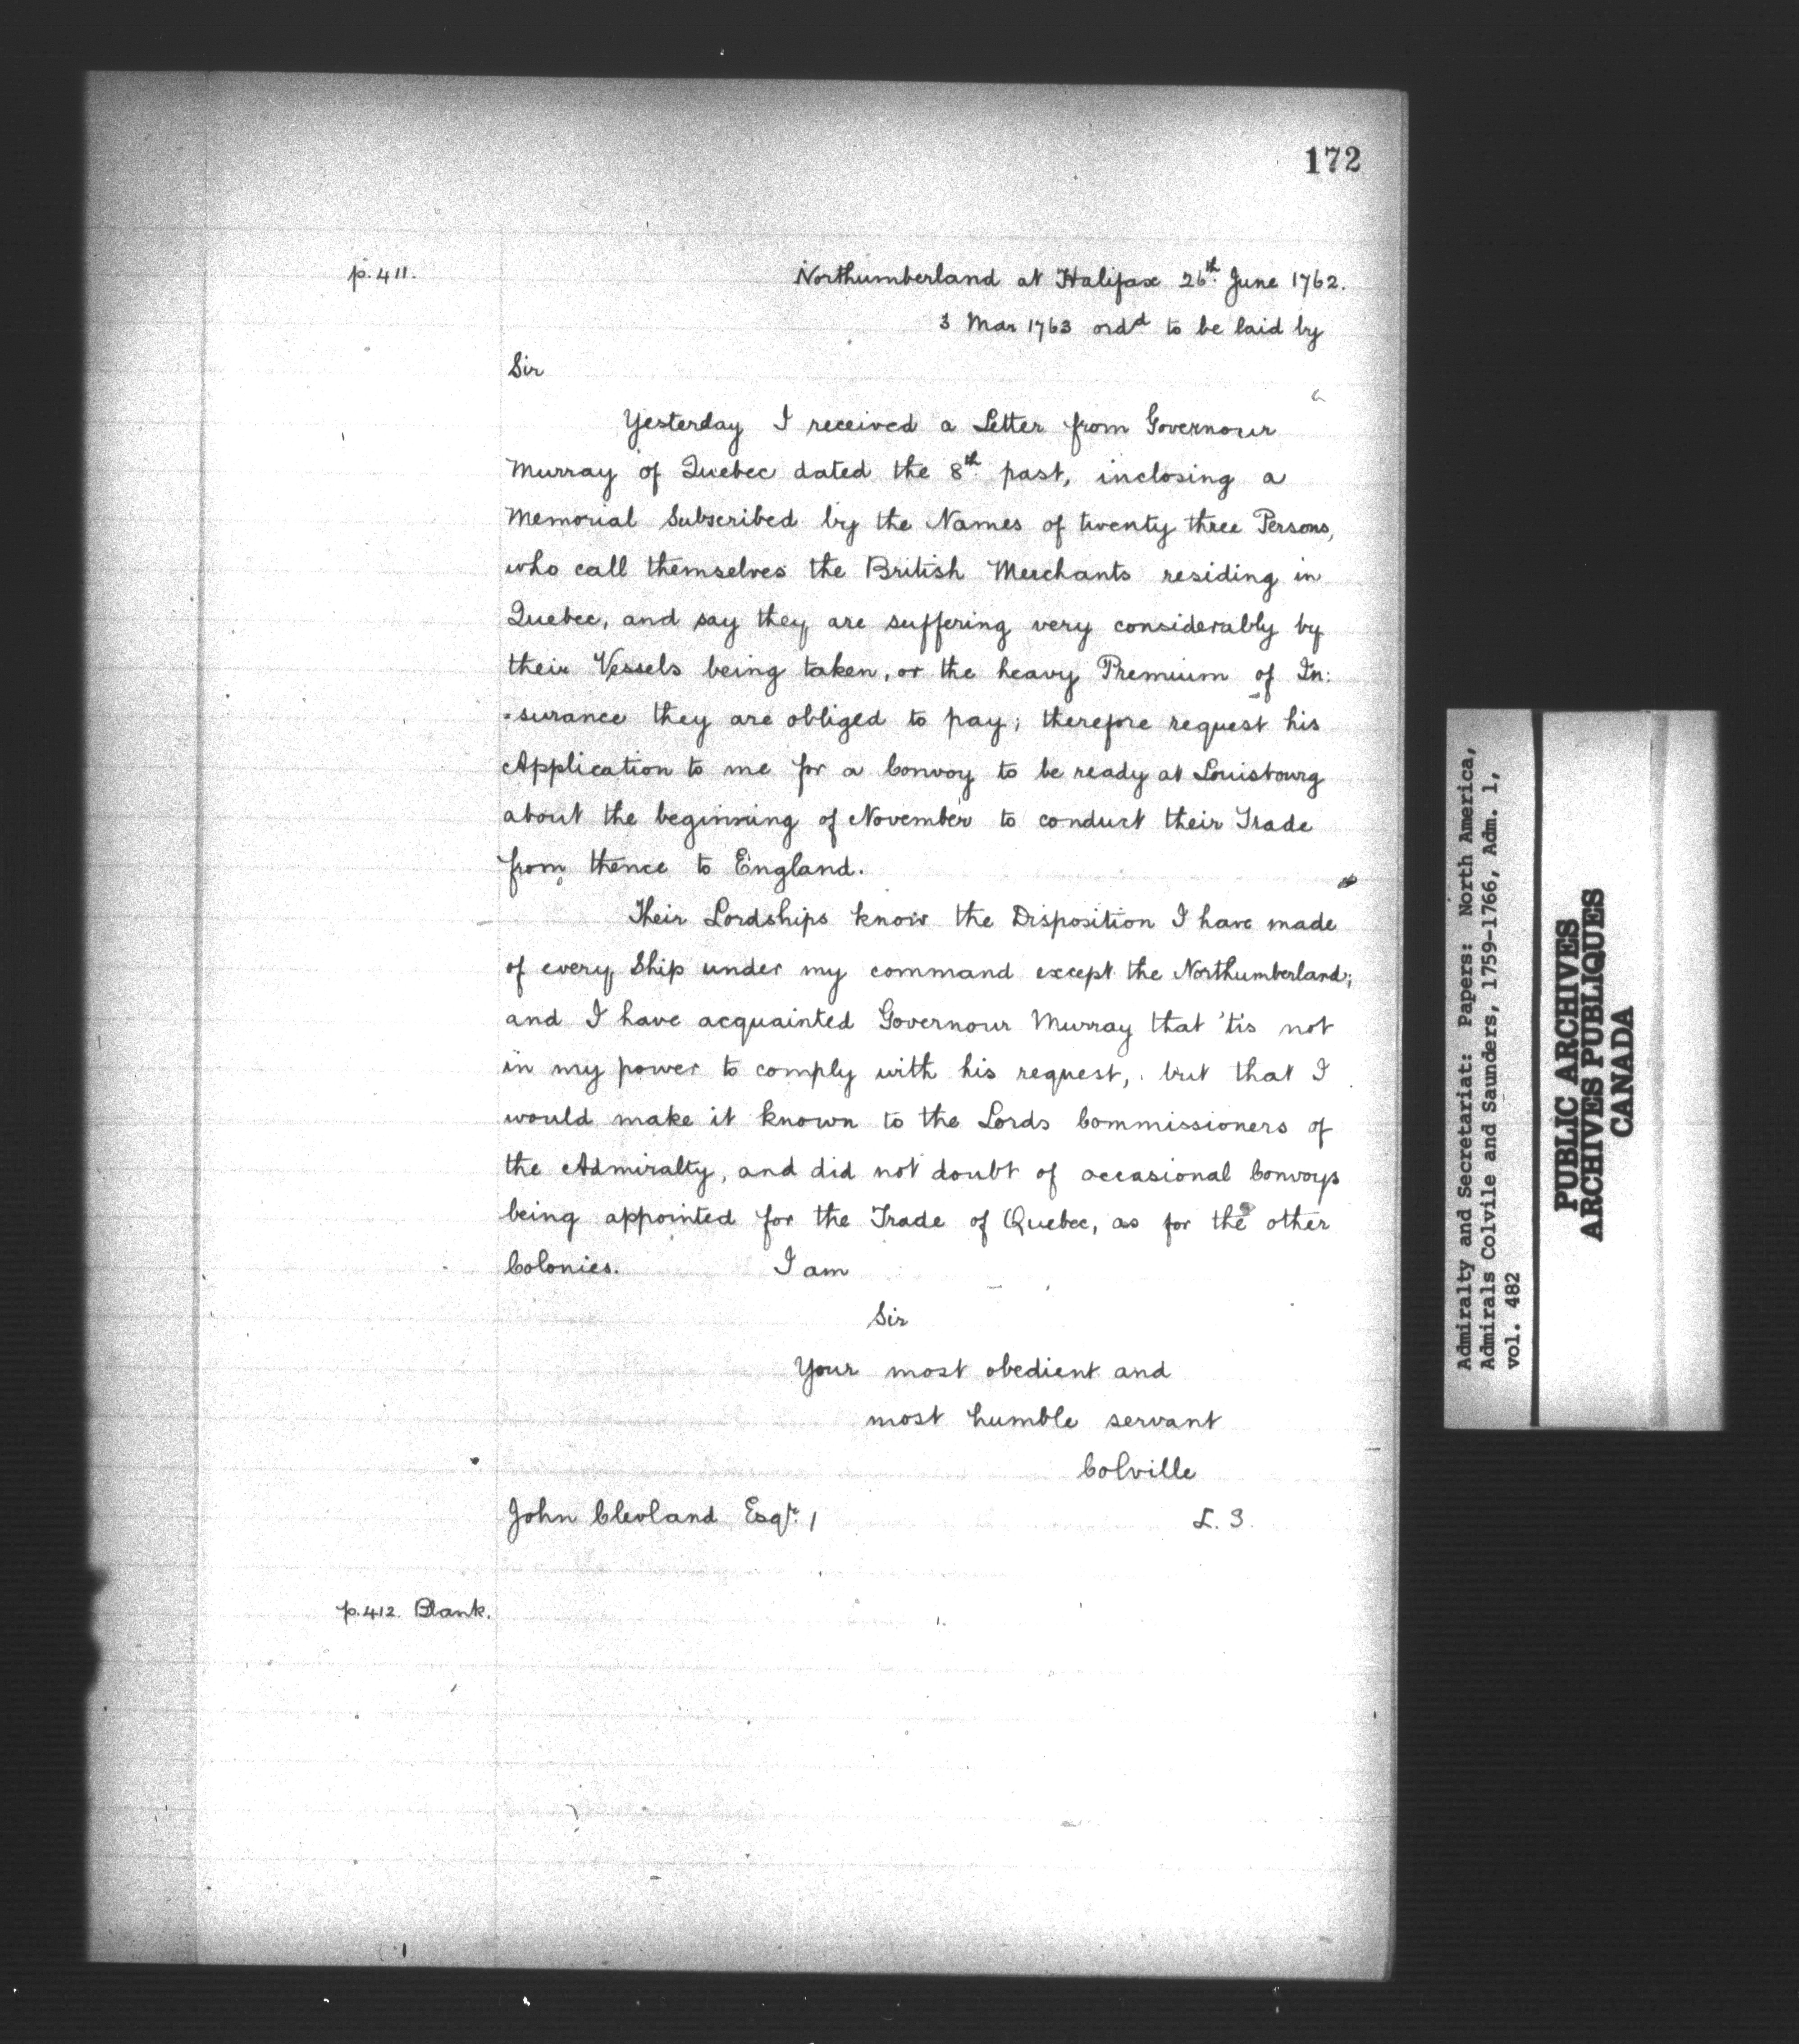 172
p.411.
Northumberland at Halifax 26th. June 1762.
3 Mar 1763 ordd to be laid by
Sir
Yesterday I received a Letter from Governour
Murray of Quebec dated the 8th. past, inclosing a
Memorial Subscribed by the Names of twenty three Persons,
who call themselves the British Merchants residing in
Quebec, and say they are suffering very considerably by
their Vessels being taken, or the heavy Premium of In:
-surance they are obliged to pay; therefore request his
Application to me for a Convoy to be ready at Louisbourg
about the beginning of November to conduct their Trade
from thence to England.
Their Lordships know the Disposition I have made
of every Ship under my command except the Northumberland;
and I have acquainted Governour Murray that 'tis not
in my power to comply with his request, but that I
would make it known to the Lords Commissioners of
the Admiralty, and did not doubt of occasional Convoys
being appointed for the Trade of Quebec, as for the other
Colonies. I am
Sir
Your most obedient and
most humble servant
Colville
John Clevland Esqr. /
L. 3.
p.412. Blank.
Admiralty and Secretariat: Papers: North America,
Admirals Colvile and Saunders, 1759-1766, Adm. 1,
vol. 482
PUBLIC ARCHIVES
ARCHIVES PUBLIQUES
CANADA